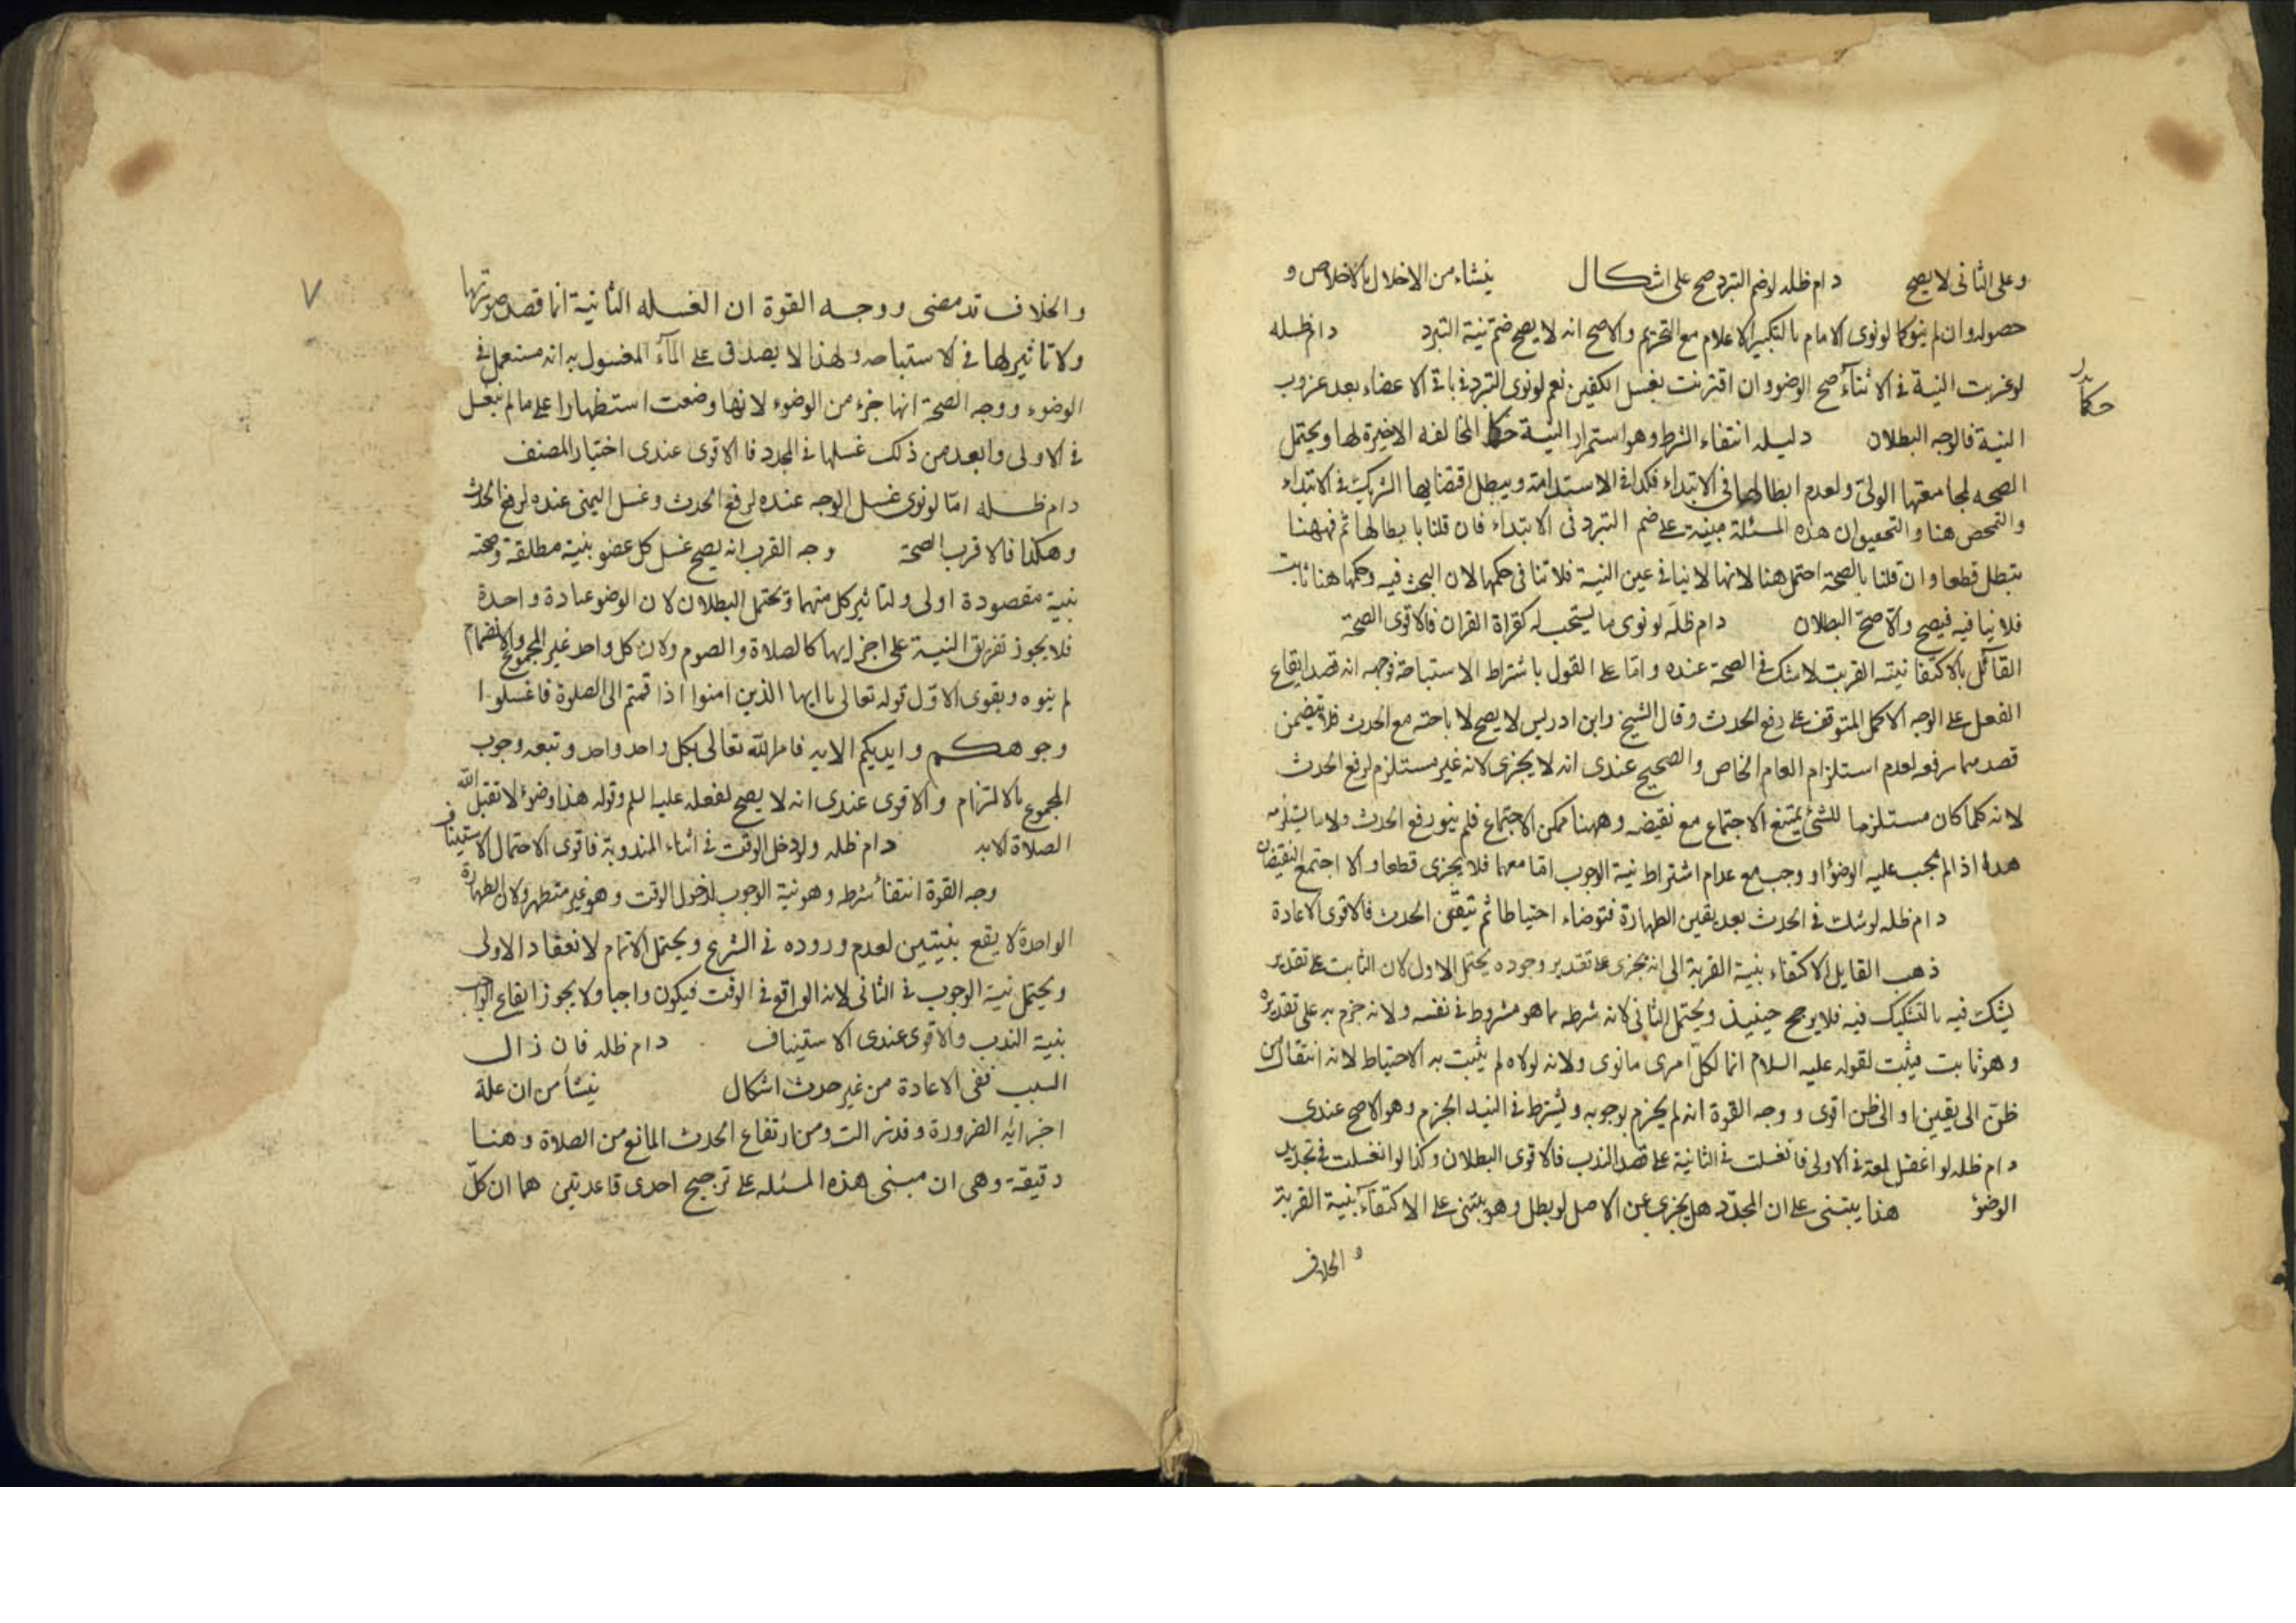 وعلى الثانى لا يصح دام ظله لو ضم التبرد صح على اشكال ينشاء من الاخلال بالاخلاص و
حصوله وان لم ينو كما لو نوى الامام بالتكبير الاعلام مع التحريم والاصح انه لا يصح ضم نية التبرد دام ظله
لو عزبت النية فى الاثناء صح الوضو وان اقترنت بغسل الكفين نعم لو نوى التبرد فى باقى الاعضاء بعد عزوب
النية فالوجه البطلان دليله انتفاء الشرط وهو استمرار النية حكما لمخالفه الاخيرة لها ويحتمل
الصحه لمجامعتها الولى ولعدم ابطالها فى الابتداء فكذا فى الاستدامة ويبطل اقتضايها التشريك فى الابتداء
والتمحض هنا والتحقيق ان هذه المسئلة مبنية على ضم التبرد فى الابتداء فان قلنا بابطالها ثم فههنا
تبطل قطعا وان قلنا بالصحة احتمل هنا لانها لا ينافى عين النية فلا تنافى حكمها لان البحث فيه وحكمها هنا ثابت
فلا ينافيه فيصح والاصح البطلان دام ظله لو نوى ما يستحب له كقراة القران فالاقوى الصحة
القائل بالاكتفا بنية القربت لا شك فى الصحة عنده واما على القول باشتراط الاستباحة فوجهه انه قصد ايقاع
الفعل على الوجه الاكمل المتوقف على رفع الحدث وقال الشيخ وابن ادريس لا يصح لاباحته مع الحدث فلا يتضمن
قصدهما رفعه لعدم استلزام العام الخاص والصحيح عندى انه لا يجزى لانه غير مستلزم لرفع الحدث
لانه كلما كان مستلزما للشئ يمتنع الاجتماع مع نقيضه وههنا ممكن الاجتماع فلم ينو رفع الحدث ولا ما يستلزمه
هذا اذا لم يجب عليه الوضوء او وجب مع عدم اشتراط نية الوجوب اما معهما فلا يجزى قطعا والا اجتمع النقيضان
دام ظله لو شك فى الحدث بعد يقين الطهارة فتوضاء احتياطا ثم تيقن الحدث فالاقوى الاعادة
ذهب القايل الاكتفاء بنية القربة الى انه يجزى على تقدير وجوده يحتمل الاول لان الثابت على تقدير
يشك فيه بالتشكيك فيه فلا يرجح حينيذ ويحتمل الثانى لانه شرطه بما هو مشروط فى نفسه ولانه جزم به على تقديره
وهو ثابت فيثبت لقوله عليه السلام انما لكل امرى ما نوى ولانه لولاه لم يثبت به الاحتياط لانه انتقال من
ظن الى يقين او الى ظن اقوى ووجه القوة انه لم يجزم بوجوبه ويشترط فى النية الجزم وهو الاصح عندى
دام ظله لو اغفل لمعة فى الاولى فانغسلت فى الثانية على قصد الندب فالاقوى البطلان وكذا لو انغسلت فى تجديد
الوضوء هذا يبتنى على ان المجدد هل يجزى عن الاصل لو بطل وهو يبتنى على الاكتفاء بنية القربة
والخلاف
٧
والخلاف قد مضى ووجه القوة ان الغسله الثانية انما قصد صورتها
ولا تاثير لها فى الاستباحه ولهذا لا يصدق على الماء المغسول به انه مستعمل فى
الوضوء ووجه الصحة انها جزء من الوضوء لانها وضعت استظهارا على ما لم ينغسل
فى الاولى وابعد من ذلك غسلها فى المجدد فالاقوى عندى اختيار المصنف
دام ظله اما لو نوى غسل الوجه عنده لرفع الحدث وغسل اليمنى عنده لرفع الحدث
وهكذا فالاقرب الصحة وجه القرب انه يصح غسل كل عضو بنية مطلقة وصحته
بنية مقصودة اولى ولتاثير كل منهما ويحتمل البطلان لان الوضو عبادة واحدة
فلا يجوز تفريق النية على اجزايها كالصلاة والصوم ولان كل واحد غير المجموع والانضمام
لم ينوه ويقوى الاول قوله تعالى يا ايها الذين امنوا اذا قمتم الى الصلوة فاغسلوا
وجوهكم وايديكم الايه فامر الله تعالى بكل واحد واحد وتبعه وجوب
المجموع بالالتزام والاقوى عندى انه لا يصح لفعله عليه السلم وقوله هذا وضوء لا تقبل الله
الصلاة الا به دام ظله ولو دخل الوقت فى اثناء المندوبة فاقوى الاحتمال الاستيناف
وجه القوة انتفاء شرطه وهو نية الوجوب لدخول الوقت وهو غير متطهر ولان الطهارة
الواحدة لا يقع بنيتين لعدم وروده فى الشرع ويحتمل الاتمام لانعقاد الاولى
ويحتمل نية الوجوب فى الثانى لانه الواقع فى الوقت فيكون واجبا ولا يجوز ايقاع الواجب
بنية الندب والاقوى عندى الاستيناف دام ظله فان زال
السبب ففى الاعادة من غير حدث اشكال ينشأ من ان علة
اجزائه الضرورة وقد زالت ومن ارتفاع الحدث المانع من الصلاة وهنا
دقيقة وهى ان مبنى هذه المسئله على ترجيح احدى قاعدتين هما ان كل